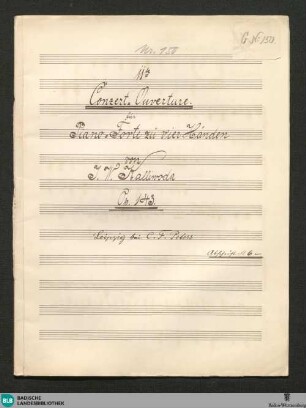 Nr. 158
11te
Concert-Ouverture.
für
Piano-Forte zu vier Händen
von
J. W. Kalliwoda
Op. 143.
Leipzig bei C. F. Peters
BLB
BADISCHE
LANDESBIBLIOTHEK
Baden-Württemberg